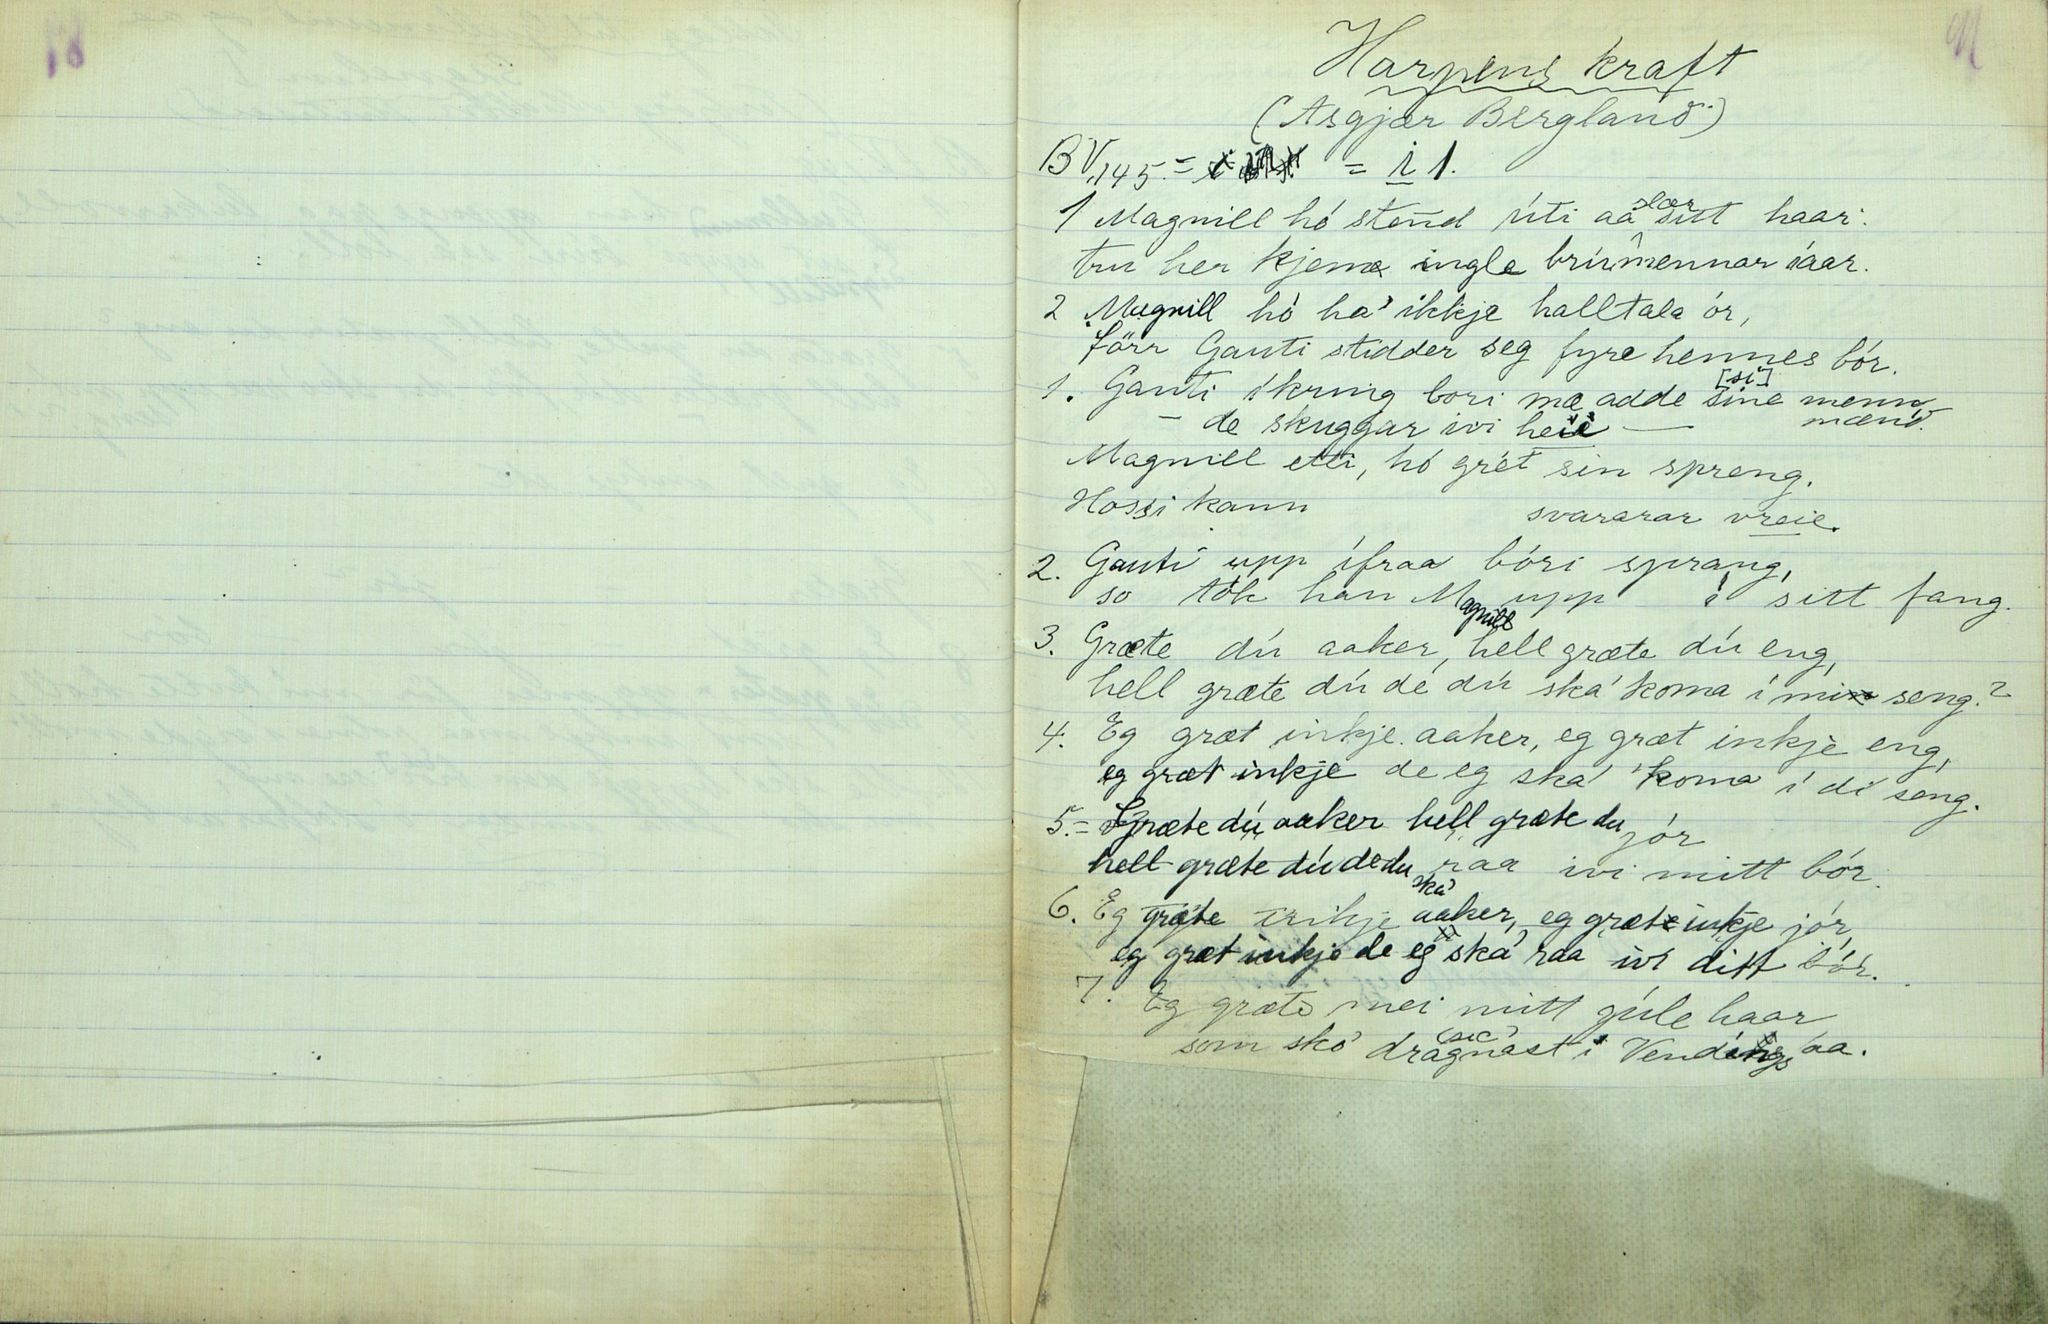 Harpens kraft
(Asgjær Bergland)
BV,145. = = i 1.
1 Magnill hó stend úti aa slær sitt haar.
tru her kjeme ingle brúmennar íaar.
2 Magnill hó ha' ikkje halltala ór,
förr Gauti stidder seg fyre hennes bór.
1. Gauti íkring bori mæ adde sine [si] menn,
mænd.
– de skuggar ivi heii —
Magnill etti, hó grét sin spreng.
Hossi kann svararar vreie.
2. Gauti upp ífraa bóri sprang,
so tók han Magnill upp i sitt fang.
3. Græte dú aaker, hell græte dú eng,
hell græte dú dé dú ska' koma í mi seng?
4. Eg græt inkje aaker, eg græt inkje eng,
eg græt inkje de eg ska' koma í di seng.
5. = Græte dú aaker hell græte du jór
hell græte dú de du ska' raa ivi mitt bór.
6. Eg græte inkje aaker, eg græt inkje jór,
eg græt inkje de eg ska' raa ivi ditt bór.
7. Eg græte mei mitt gúle haar
som sko' dragnast (sic) i Vendings aa.